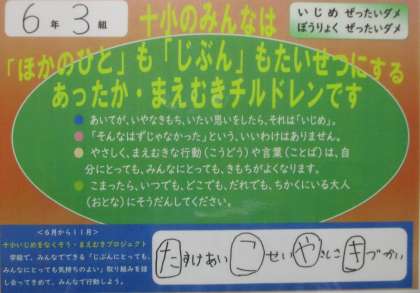 6年3組
いじめ ぜったいダメ
ぼうりょく ぜったいダメ
十小のみんなは
「ほかのひと」も「じぶん」もたいせつにする
あったか・まえむきチルドレンです
あいてが、いやなきもち、いたい思いをしたら、それは「いじめ」。
「そんなはずじゃなかった」という、いいわけはありません。
やさしく、まえむきな行動(こうどう)や言葉(ことば)は、自
分にとっても、みんなにとっても、きもちがよくなります。
こまったら、いつでも、どこでも、だれでも、ちかくにいる大人
(おとな)にそうだんしてください。
<6月から11月>
十小いじめをなくそう・まえむきプロジェクト
学級で、みんなでできる「じぶんにとっても、
みんなにとっても気持ちのよい」取り組みを話
し合ってきめて、みんなで行動しよう。
たすけあい こせい やさしさ きづかい